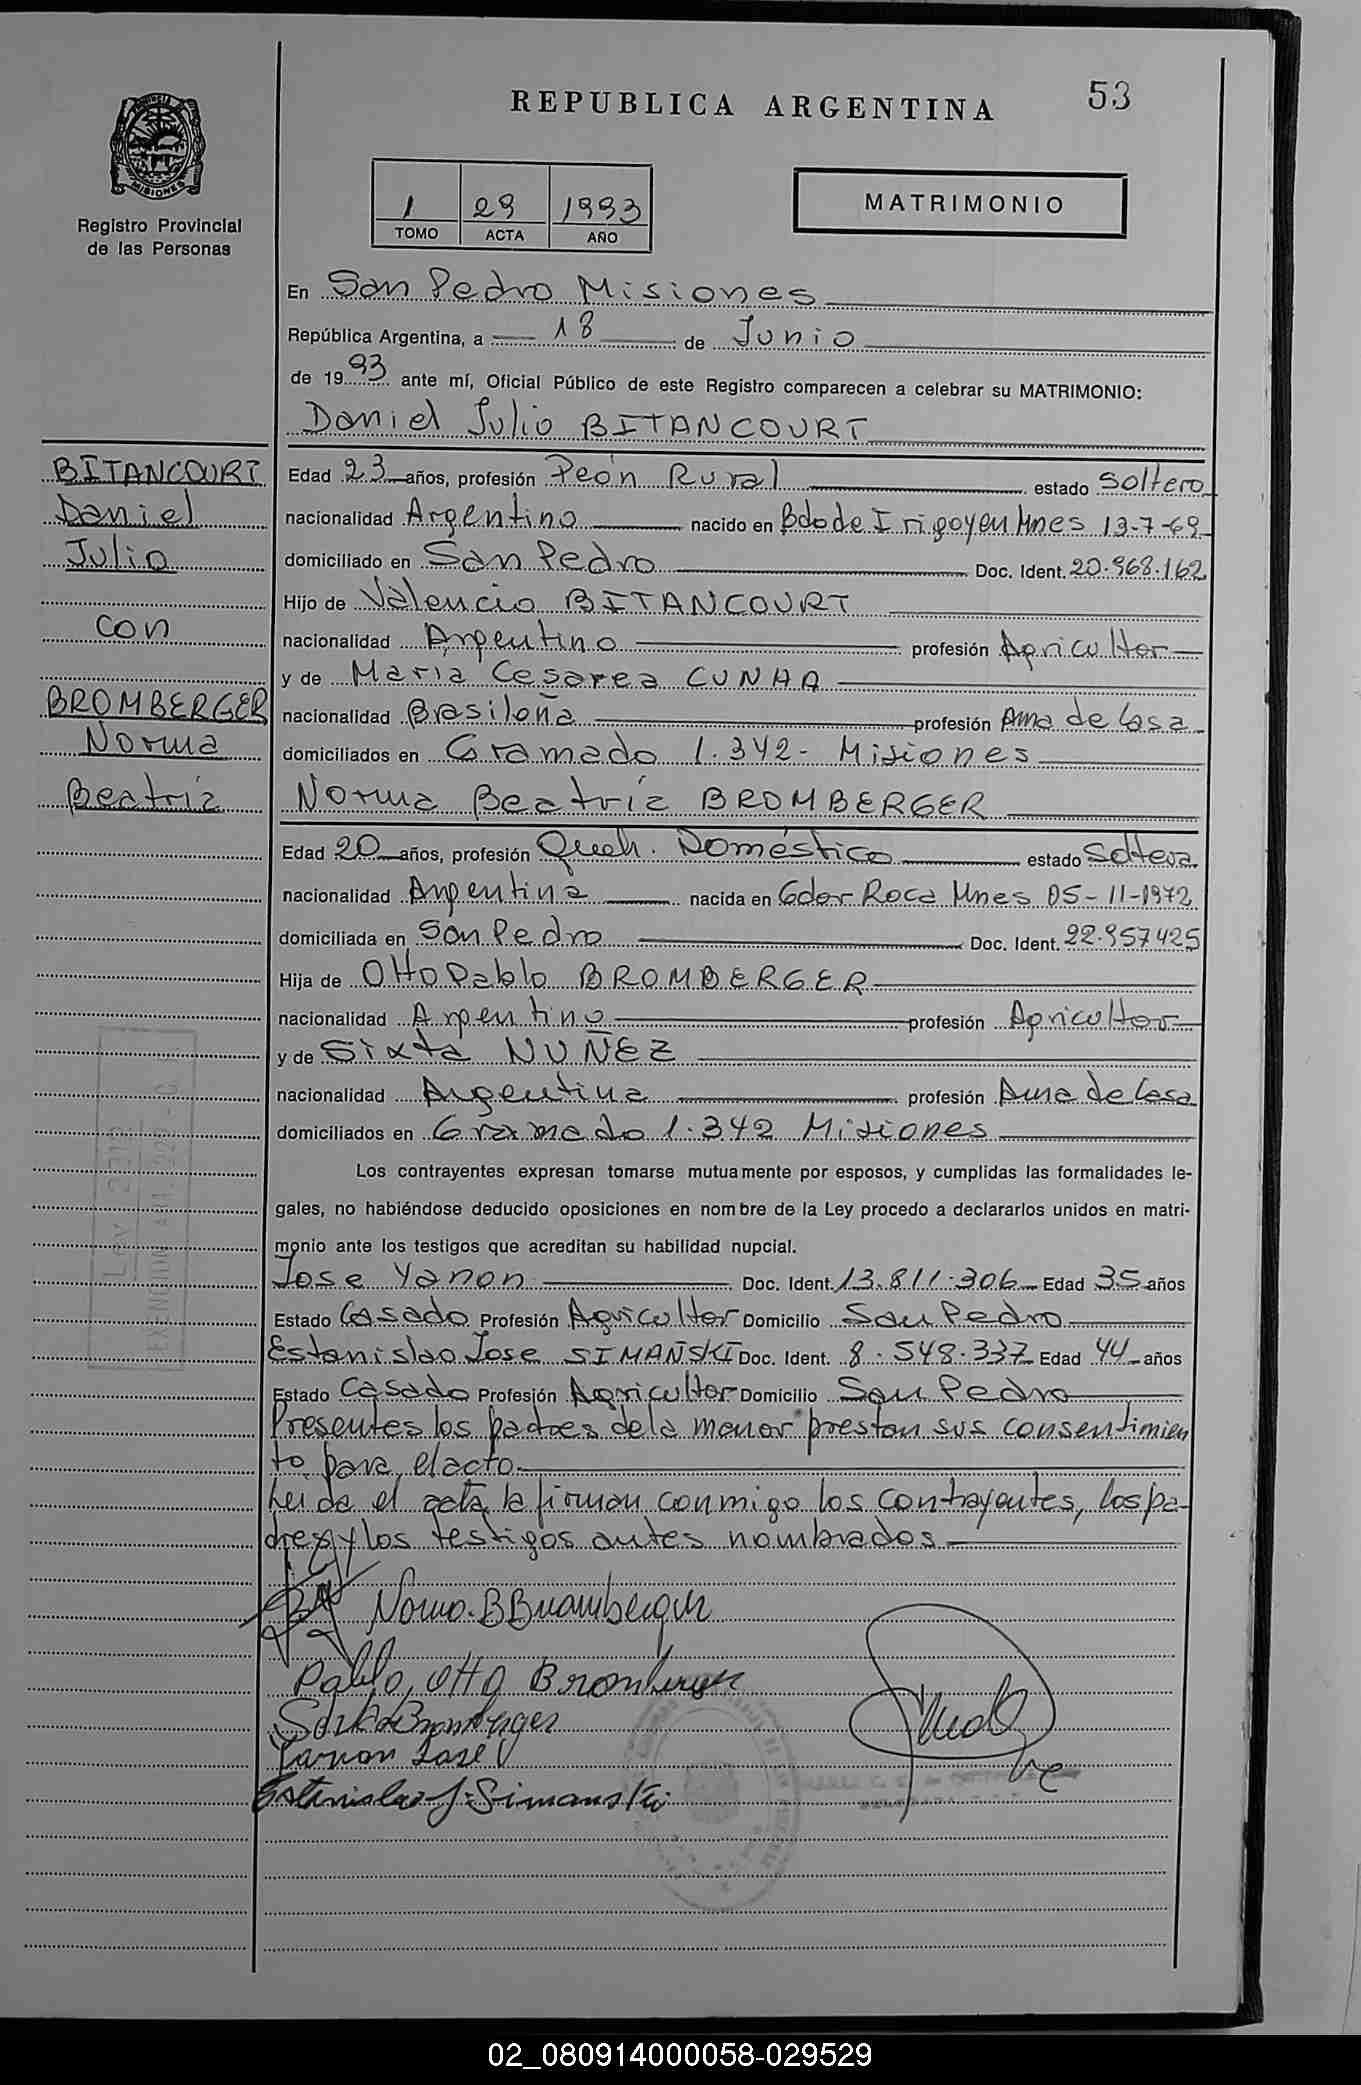 53
REPUBLICA ARGENTINA
MISIONES
Registro Provincial
de las Personas
1 29 1993
TOMO ACTA AÑO
MATRIMONIO
En San Pedro Misiones
República Argentina, a 18 de Junio
de 1993 ante mí, Oficial Público de este Registro comparecen a celebrar su MATRIMONIO:
Daniel Julio BITANCOURT
BITANCOURT
Daniel
Julio
con
BROMBERGER
Norma
Beatriz
Edad 23 años, profesión Peón Rural estado Soltero
nacionalidad Argentino nacido en Bdo de Irigoyen Mnes 13-7-69
domiciliado en San Pedro Doc. Ident. 20.968.162
Hijo de Valencio BITANCOURT
nacionalidad Argentino profesión Agricultor
y de Maria Cesarea CUNHA
nacionalidad Brasileña profesión Ama de Casa
domiciliados en Gramado 1.342- Misiones
Norma Beatríz BROMBERGER
Edad 20 años, profesión Queh. Doméstico estado Soltera
nacionalidad Argentina nacida en Gdor Roca Mnes 05-11-1972
domiciliada en San Pedro Doc. Ident. 22.957425
Hija de Otto Pablo BROMBERGER
nacionalidad Argentino profesión Agricultor
y de Sixta NUÑEZ
nacionalidad Argentina profesión Ama de Casa
domiciliados en Gramado 1.342 Misiones
Los contrayentes expresan tomarse mutuamente por esposos, y cumplidas las formalidades le-
gales, no habiéndose deducido oposiciones en nombre de la Ley procedo a declararlos unidos en matri-
monio ante los testigos que acreditan su habilidad nupcial.
Jose Yanon Doc. Ident. 13.811.306 Edad 35 años
Estado Casado Profesión Agricultor Domicilio San Pedro
Estanislao Jose SIMAÑSKI Doc. Ident. 8.548.337 Edad 44 años
Estado Casado Profesión Agricultor Domicilio San Pedro
Presentes los padres de la menor prestan sus consentimien
to para el acto.
Leida el acta la firman conmigo los contrayentes, los pa-
dres y los testigos antes nombrados
Norma. B Bromberger
Pablo, Otto Bromberger
Bromberger
Yanon José
Estanislao J. Simanski
02_080914000058-029529